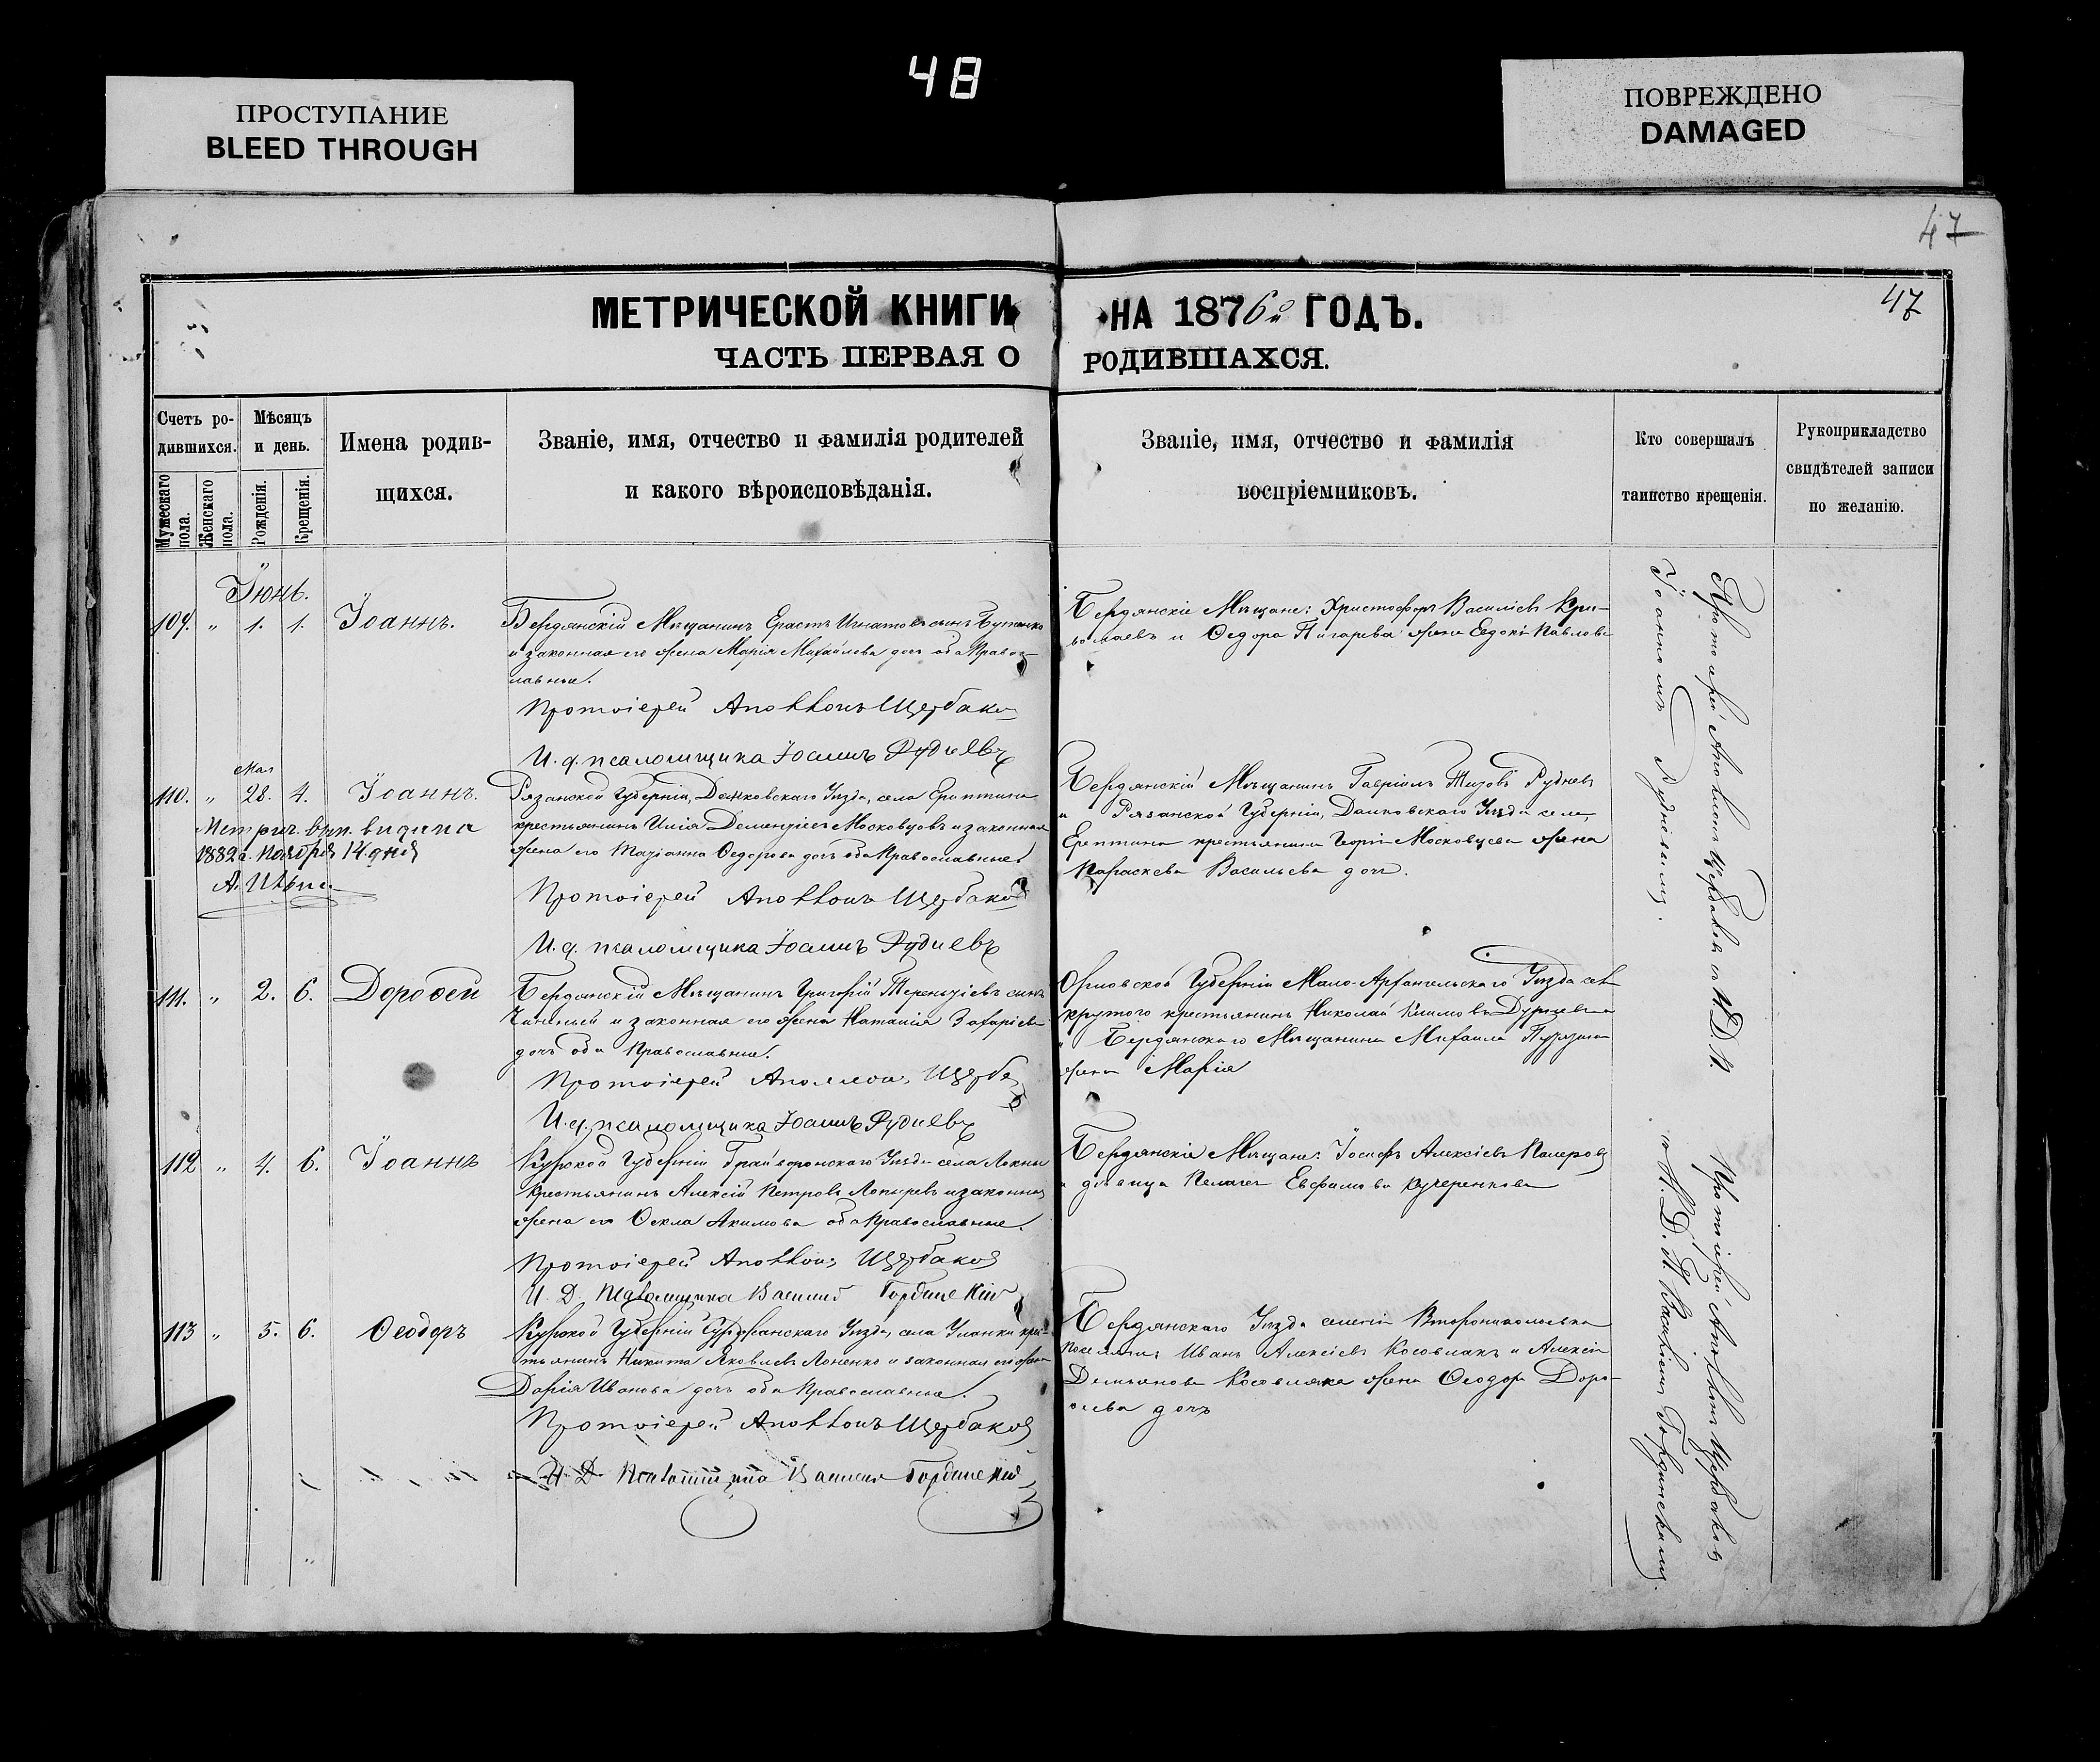 48
ПРОСТУПАНИЕ
BLEED THROUGH
ПОВРЕЖДЕНО
DAMAGED
47
47
МЕТРИЧЕСКОЙ КНИГИ НА 1876й ГОДЪ.
ЧАСТЬ ПЕРВАЯ О РОДИВШАХСЯ.
Счетъ ро-
дившихся.
Мужескаго пола.
Женскаго пола.
Мѣсяцъ
и день.
Рожденія.
Крещенія.
Имена родив-
щихся.
Званіе, имя, отчество и фамилія родителей
и какого вѣроисповѣданія.
Званіе, имя, отчество и фамилія
воспріемниковъ.
Кто совершалъ
таинство крещенія.
Рукоприкладство
свидѣтелей записи
по желанію.
Їюнь.
109. " 1. 1. Їоаннъ.
Бердянскій Мѣщанинъ Ерастъ Игнатовъ сынъ Бутенко
и законная его жена Марія Михайлова дочь оба Правос-
лавные.
Протоіерей Аполлонъ Щербаковъ
И. д. псаломщика Їоаннъ Рудневъ
Бердянскіе Мѣщане: Христофоръ Василіевъ
и Ѳедора Пигарева жена Евдокія Павлова
Мая
110. " 28. 4. Їоаннъ.
Метрич. вып. видана
1882 г. Ноября 14 дня
Рязанской Губерніи, Данковскаго Уѣзда, села
крестьянинъ Илія Дементіевъ Московцовъ и законная
жена его Маріанна Ѳедорова дочь оба Православные.
Протоіерей Аполлонъ Щербаковъ
И. д. псаломщика Їоаннъ Рудневъ
Бердянскій Мѣщанинъ Гавріилъ Рудневъ
и Рязанской Губерніи, Данковскаго Уѣзда села
крестьянина Георгія Московцева жена
Параскева Васильева дочь.
111. " 2. 6. Дороѳей
Бердянскій Мѣщанинъ Григорій Терентіевъ сынъ
и законная его жена Наталія Захаріева
дочь оба Православные.
Протоіерей Аполлонъ Щербаковъ
И. д. псаломщика Їоаннъ Рудневъ
Орловской Губерніи Мало-Архангельскаго Уѣзда села
Крутого крестьянинъ Николай Климовъ
и Бердянскаго Мѣщанина Михаила
жена Марія
112 " 4. 6. Їоаннъ
Курской Губерніи Грайворонскаго Уѣзда села Локни
Крестьянинъ Алексій Петровъ Лопыревъ и законная
жена его Ѳекла Акимова оба Православные.
Протоіерей Аполлонъ Щербаковъ
И. Д. Псаломщика Василій Гординскій
Бердянскіе Мѣщане: Іосифъ Алексіевъ
и дѣвица Пелагея Евфимова Кучеренкова
113 " 5. 6. Ѳеодоръ
Курской Губерніи Суджанскаго Уѣзда, села Уланки крес-
тьянинъ Никита Яковлевъ Лоненко и законная его жена
Дарія Иванова дочь оба Православные.
Протоіерей Аполлонъ Щербаковъ
И. Д. Псаломщика Василій Гординскій
Бердянскаго Уѣзда селенія Второниколаевки
поселянинъ Иванъ Алексіевъ Косовлакъ и Алексія
Демьянова Косовляка жена Ѳеодора Доро-
ѳеева дочь
Протоіерей Аполлонъ Щербаковъ и И. Д. П.
Їоанномъ Рудневымъ.
Протоіерей Аполлонъ Щербаковъ
и И. Д. П. Василіемъ Гординскимъ.